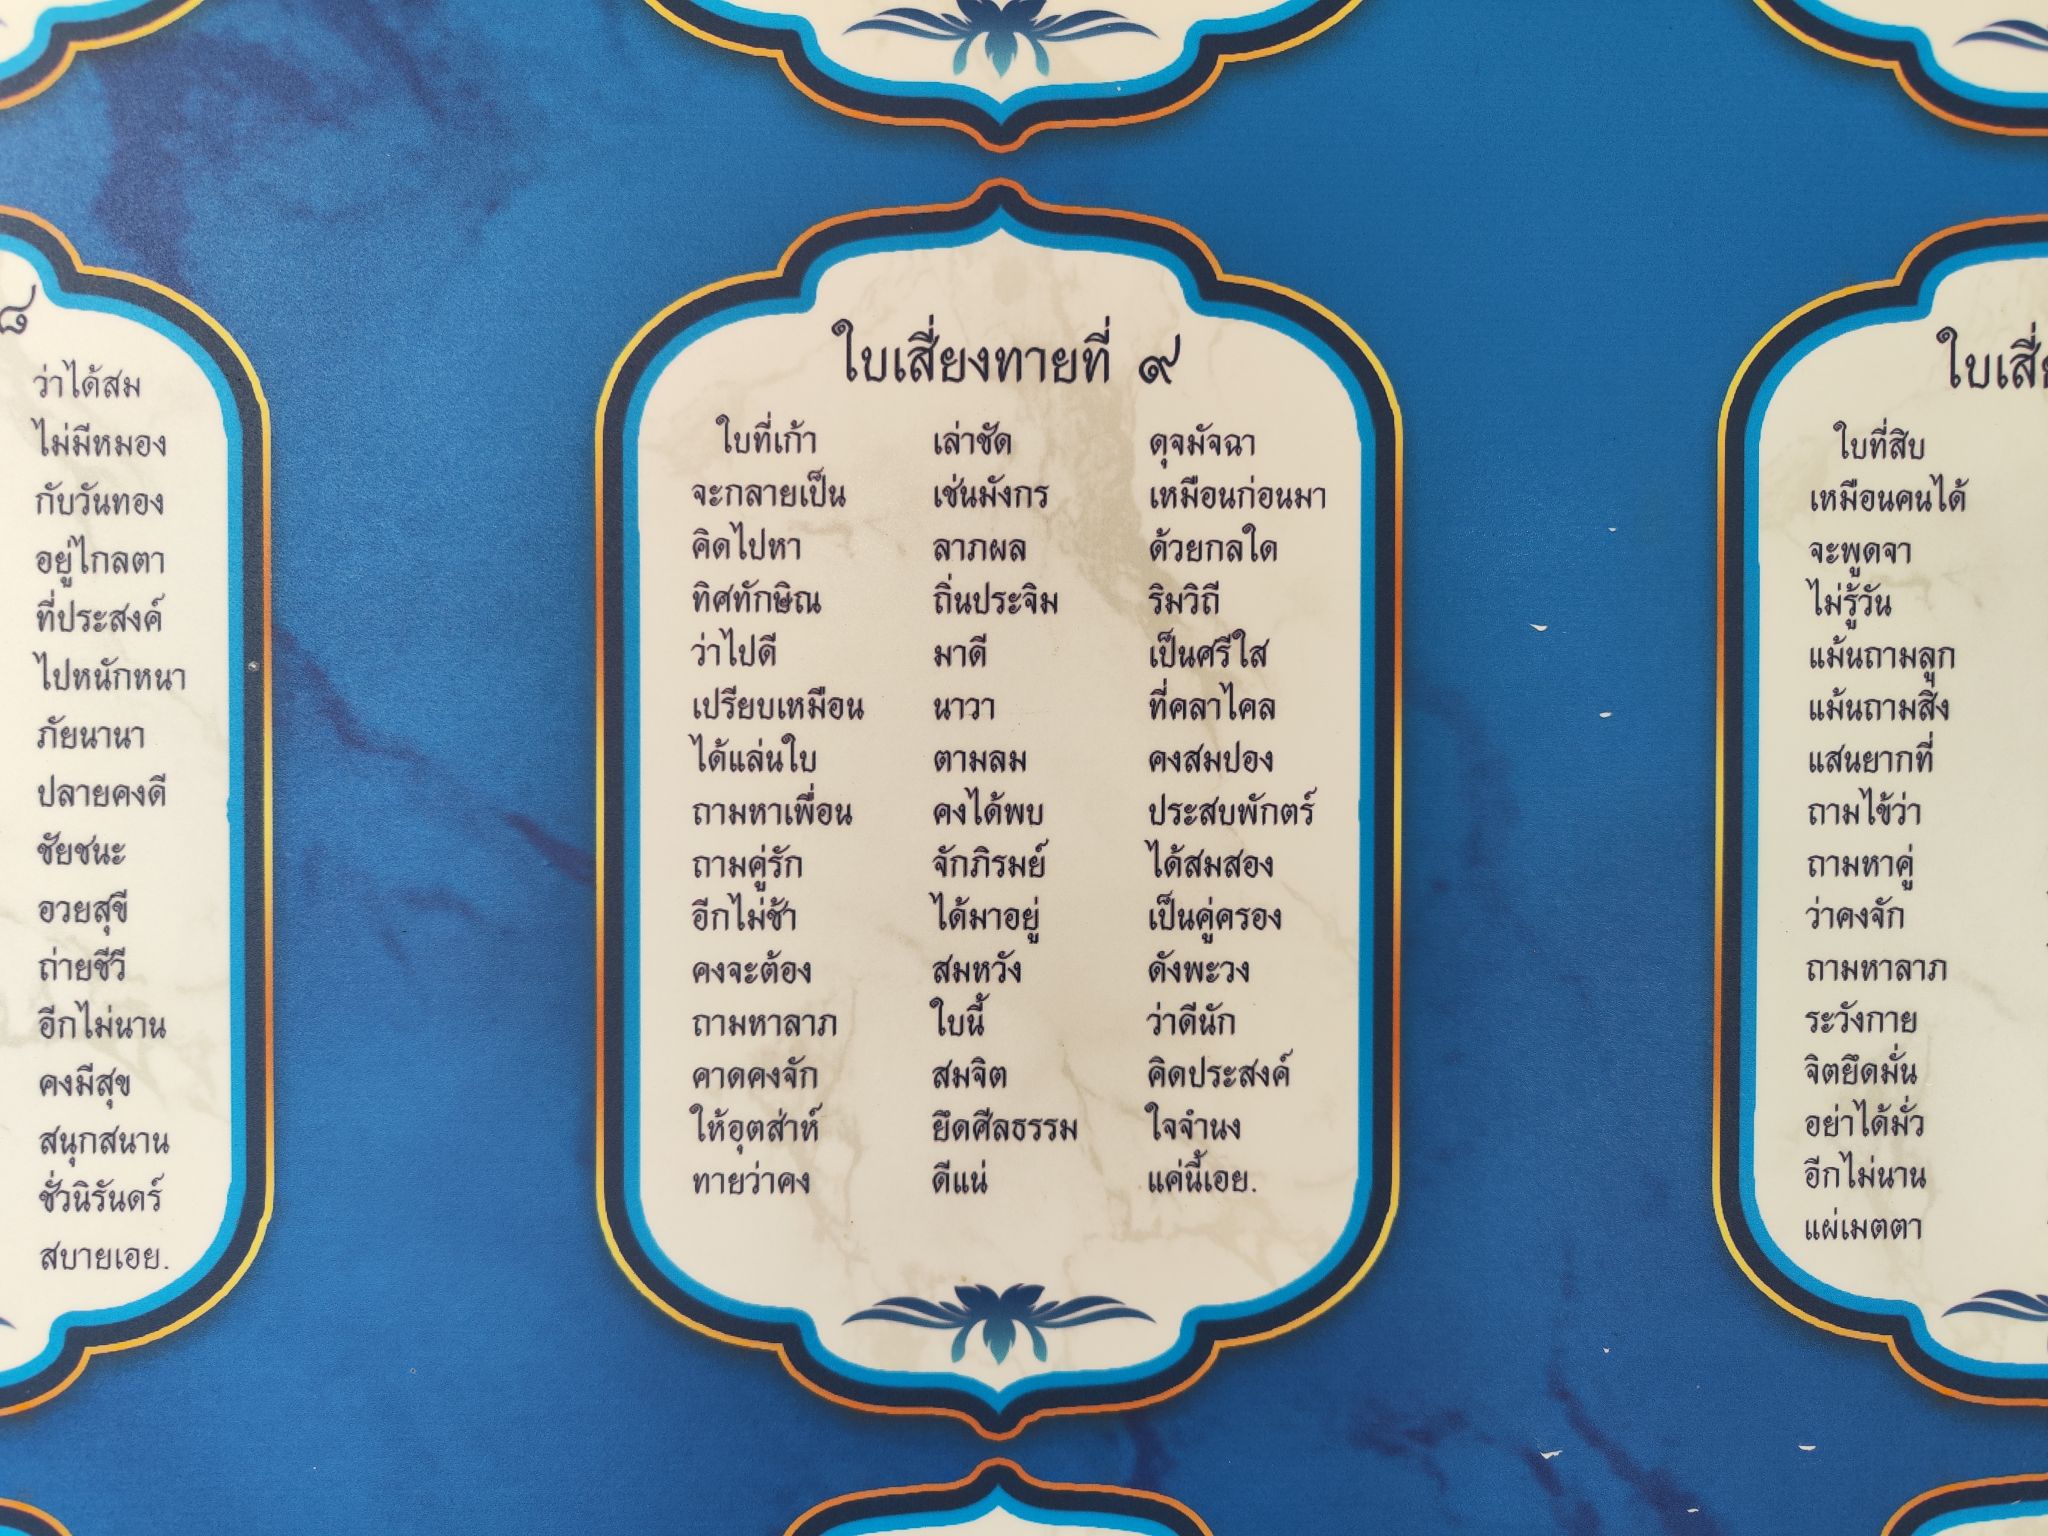 ๘
ว่าได้สม
ไม่มีหมอง
กับวันทอง
อยู่ไกลตา
ที่ประสงค์
ไปหนักหนา
ภัยนานา
ปลายคงดี
ชัยชนะ
อวยสุขี
ถ่ายชีวี
อีกไม่นาน
คงมีสุข
สนุกสนาน
ชั่วนิรันดร์
สบายเอย.
ใบเสี่ยงทายที่ ๙
ใบที่เก้า เล่าชัด ดุจมัจฉา
จะกลายเป็น เช่นมังกร เหมือนก่อนมา
คิดไปหา ลาภผล ด้วยกลใด
ทิศทักษิณ ถิ่นประจิม ริมวิถี
ว่าไปดี มาดี เป็นศรีใส
เปรียบเหมือน นาวา ที่คลาไคล
ได้แล่นใบ ตามลม คงสมปอง
ถามหาเพื่อน คงได้พบ ประสบพักตร์
ถามคู่รัก จักภิรมย์ ได้สมสอง
อีกไม่ช้า ได้มาอยู่ เป็นคู่ครอง
คงจะต้อง สมหวัง ดังพะวง
ถามหาลาภ ใบนี้ ว่าดีนัก
คาดคงจัก สมจิต คิดประสงค์
ให้อุตส่าห์ ยึดศีลธรรม ใจจำนง
ทายว่าคง ดีแน่ แค่นี้เอย.
ใบเสี่
ใบที่สิบ
เหมือนคนได้
จะพูดจา
ไม่รู้วัน
แม้นถามลูก
แม้นถามสิ่ง
แสนยากที่
ถามไข้ว่า
ถามหาคู่
ว่าคงจัก
ถามหาลาภ
ระวังกาย
จิตยึดมั่น
อย่าได้มั่ว
อีกไม่นาน
แผ่เมตตา